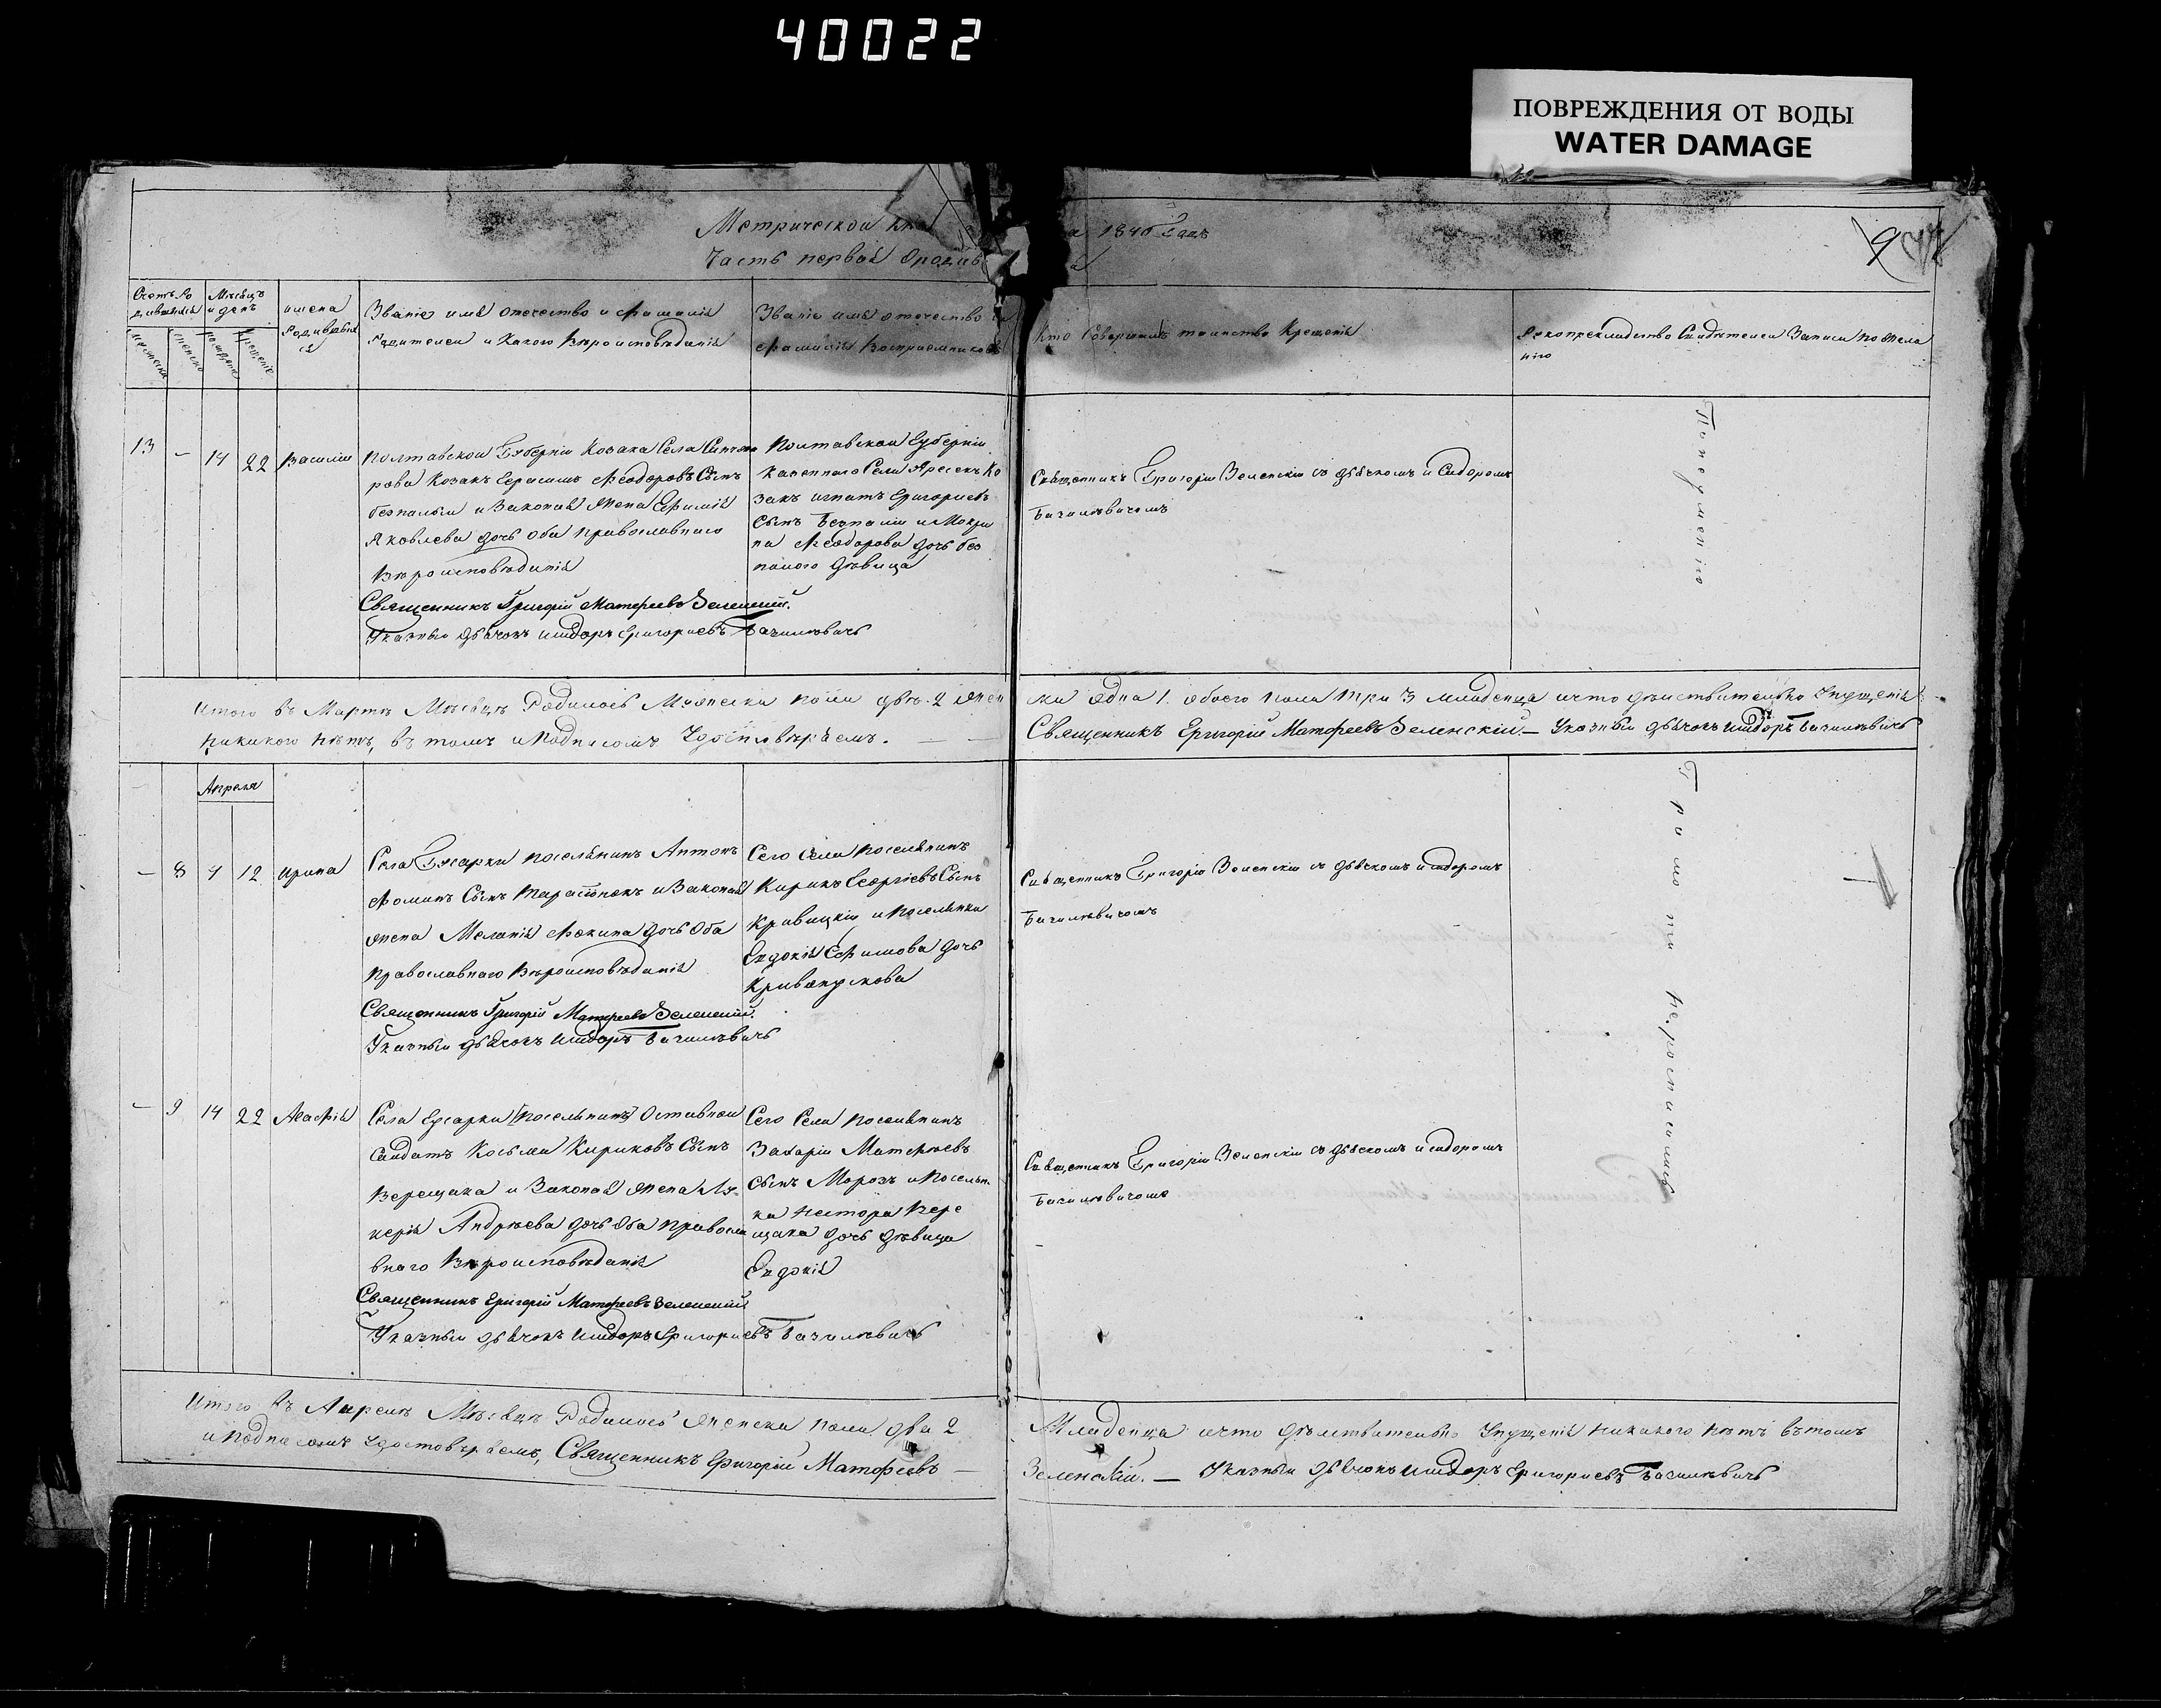 40022
ПОВРЕЖДЕНИЯ ОТ ВОДЫ
WATER DAMAGE
Метрической на 1840 Годъ
Часть первая
9
Мѣсяцъ и день
имена родившихся
Званіе имя отечество и фамилія
родителей и какого вѣроисповѣданія
Званіе имя отечество и
фамилія воспріемниковъ
кто совершалъ таинство крещенія
Рукоприкладство свидѣтелей записи по жела
нію
13 – 14 22 Василій
Полтавской Губерніи Козака Села
Козакъ Герасимъ Феодоровъ Сынъ
безпалый и Законая жена Ефимія
Яковлева дочь оба православнаго
Вѣроисповѣданія
Священникъ Григорій Матфеевъ Зеленскій.
Указный дьячокъ Исидоръ Григориевъ Базилѣвичъ
Полтавской Губерніи
Казеннаго Села Яресекъ Ко
закъ игнатъ Григориевъ
Сынъ Безпалій и Мокри
на Феодорова дочь без
палого дѣвица
Священникъ Григорій Зеленскій съ дьячкомъ Исидоромъ
Базилѣвичомъ
Итого въ Мартѣ Мѣсяцѣ Родилось Мужеска пола два 2 жен
ска Одна 1. обоего пола три 3 младенца и что дѣйствительно Упущенія
никакого нѣтъ, въ томъ и подписомъ Удостовѣряемъ.
Священникъ Григорій Матфеевъ Зеленскій. – Указный дьячокъ Исидоръ Базилѣвичъ
Апреля
– 8 4 12 Ирина
Села Гусарки поселянинъ Антонъ
Фоминъ Сынъ и Законая
жена Меланія Фокина дочь Оба
Православнаго Вѣроисповѣданія
Священникъ Григорій Матфеевъ Зеленскій.
Указный дьячокъ Исидоръ Базилѣвичъ
Сего села поселянинъ
Кирикъ Георгіевъ Сынъ
Кривицкій и поселянка
Евдокія Ефимова дочь
Священникъ Григорій Зеленскій съ дьячкомъ Исидоромъ
Базилѣвичомъ
– 9 14 22 Агафія
Села Гусарки поселянинъ Отставной
Салдатъ Косьма Кириковъ Сынъ
Верещака и Законая жена Лу
керія Андрѣева дочь Оба Правосла
внаго Вѣроисповѣданія
Священникъ Григорій Матфеевъ Зеленскій
Указный дьячокъ Исидоръ Григориевъ Базилѣвичъ
Сего Села поселянинъ
Захарій Матфѣевъ
Сынъ Морозъ и поселян
ка Нестора Вере
щака дочь дѣвица
Евдокія
Священникъ Григорій Зеленскій съ дьячкомъ Исидоромъ
Базилѣвичомъ
Итого въ Апрелѣ Мѣсяцѣ Родилось женска пола два 2
Младенца и что дѣйствительно Упущенія никакого нѣтъ въ томъ
и подписомъ удостовѣряемъ, Священникъ Григорій Матфеевъ –
Зеленскій. – Указный дьячокъ Исидоръ Григориевъ Базилѣвичъ